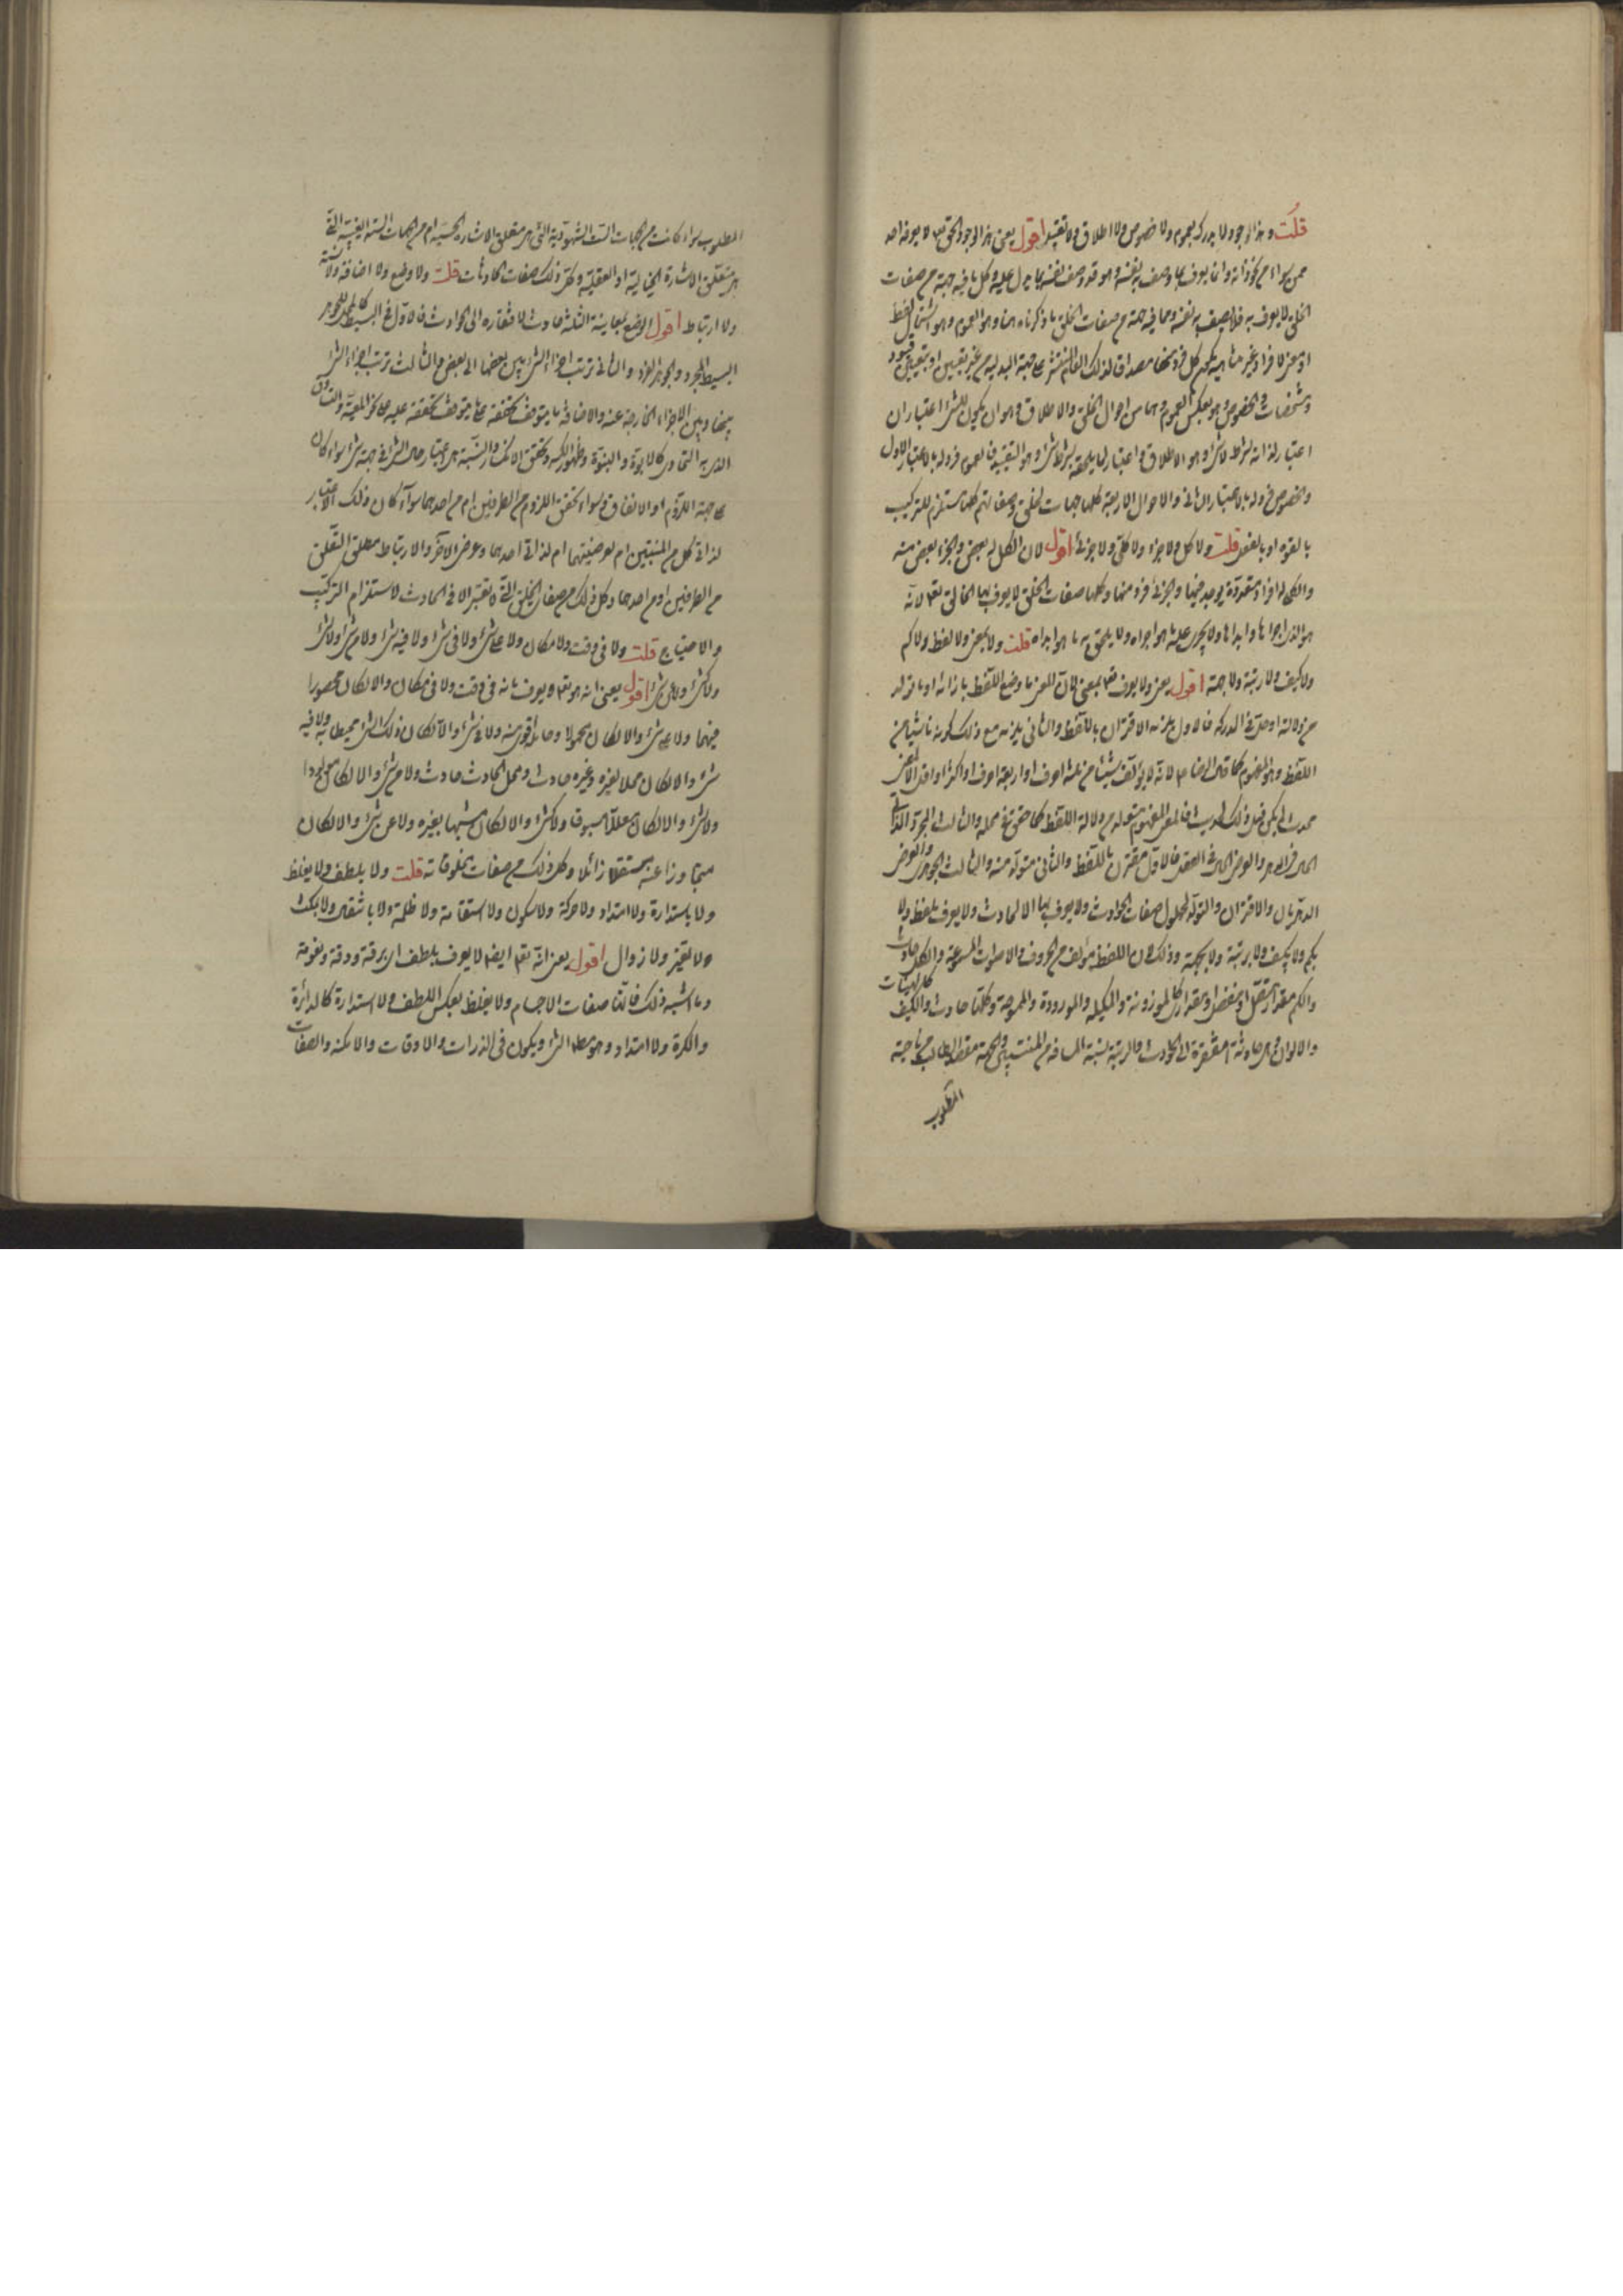 قلت وهذا الوجود لا يدرك بعموم ولا خصوص ولا اطلاق ولا تقييد اقول يعنى هذا الوجود الحق تع لا يعرفه احد
ممن سواه من نحو ذاته وانما يعرف بما وصف به نفسه وهو قد وصف نفسه بما يدل عليه وكل ما فيه جهة من صفات
الخلق لا يعرف به فلا يصف به نفسه ومما فيه جهة من صفات الخلق ما ذكرناه هنا وهو العموم وهو اشتمال لفظ
او معنى لافراد غير متناهية يكون كل فرد منها مصداق لذلك العام المنتشر على جهة البدلية من غير تعيين او بتعيين قيود
ومشخصات والخصوص وهو بعكس العموم وهما من احوال الخلق والاطلاق وهو ان يكون للشئ اعتباران
اعتبار لذاته بشرط لا شئ وهو الاطلاق واعتبار لما يلحقه بشرط شئ وهو التقييد فالعموم فرد له بالاعتبار الاول
والخصوص فرد له بالاعتبار الثانى والاحوال الاربعة كلها جهات الخلق وصفاتهم كلها مستلزم للتركيب
بالقوة او بالفعل قلت ولا كل ولا جزء ولا كلى ولا جزئى اقول لان الكل له بعض والجزء بعض منه
والكلى له افراد متعددة يوجد فيها والجزئى فرد منها وكلها صفات الخلق لا يعرف بها الخالق تع لانه
هو الذى اجراها وابداها ولا يجرى عليه ما هو اجراه ولا يلحق به ما هو ابداه قلت ولا بمعنى ولا لفظ ولا كم
ولا كيف ولا رتبة ولا جهة اقول يعنى ولا يعرف تع بمعنى لان المعنى ما وضع اللفظ بازائه او ما تولد
من دلالته او حل فى المدركه فالاول يلزمه الاقتران باللفظ والثانى يلزمه مع ذلك كونه ناشيا من
اللفظ وهو المفهوم كما قال الرضا ع لانه لا يؤلف شيئا من ثلثة احرف او اربعة احرف او اكثر او اقل الا لمعنى
محدث لم يكن قبل ذلك فالمعنى المفهوم متولد من دلالة اللفظ كما حقق فى محله والثالث المجرد الذاتى
الحال فى والعرض الحال فى العقل فالاول مقترن باللفظ والثانى متولد منه والثالث الجوهرى والعرضى
الدهريان والاقتران والتولد والحلول صفات الحوادث ولا يعرف بها الا الحادث ولا يعرف بلفظ ولا
بكم ولا بكيف ولا برتبة ولا بجهة وذلك لان اللفظ مؤلف من الحروف والاصوات المسموعة والكل حادث
والكم مقدار متصل او منفصل او بمقدار كالموزونة والمكيله والمعدودة والممسوحة وكلها حادث والكيف كالهيئات
والالوان وهى حادثة مفتقرة الى الحوادث والرتبة نسبة المسافة من المنتسبين والجهة مقصد الطالب من ناحية
المطلوب
المطلوب سواء كانت من الجهات الست الشهودية التى هى متعلق الاشارة الحسية ام من الجهات الستة الغيبية التى
هى متعلق الاشارة الخيالية او العقلية وكل ذلك صفات الحادثات قلت ولا وضع ولا اضافة ولا نسبة
ولا ارتباط اقول الوضع بمعانيه الثلثة حادث لافتقاره الى الحوادث فالاول فى البسيط كالمحل للجوهر
البسيط المجرد والجوهر الفرد والثانى ترتب اجزاء الشئ بين بعضها الى بعض والثالث ترتب اجزاء الشئ
بينها وبين الاجزاء الخارجة عنه والاضافة ما يتوقف تحققه على ما يتوقف تحققه عليه على نحو المعية والتساوق
الذى به التحاور كالابوة والبنوة وظهور الكسر وتحقق الانكسار والنسبة هى اعتبار حال الشئ فى جهة شئ سواء كان
على جهة اللزوم او الاتفاق وسواء تحقق اللزوم من الطرفين ام من احدهما سواء كان ذلك الاعتبار
لذاتى كل من المنتسبين ام لعرضيتهما ام لذاتى احدهما وعرض الاخر والارتباط مطلق التعلق
من الطرفين او من احدهما وكل ذلك من صفات الخلق التى لا تعتبر الا فى الحادث لاستلزام التركيب
والاحتياج قلت ولا فى وقت ولا مكان ولا على شئ ولا فى شئ ولا فيه شئ ولا من شئ ولا لشئ
ولا كشئ ولا عن شئ اقول يعنى انه هو تعالى لا يعرف بانه فى وقت ولا فى مكان والا لكان محصورا
فيهما ولا على شئ والا لكان محمولا وحامله اقوى منه ولا فى شئ والا لكان ذلك الشئ محيطا به ولا فيه
شئ والا لكان محلا لغيره وغيره حادث ومحل الحادث حادث ولا من شئ والا لكان مولودا
ولا لشئ والا لكان معللا مسبوقا ولا كشئ والا لكان مشبها بغيره ولا عن شئ والا لكان
متجاوزا عنه مستقلا زائلا وكل ذلك من صفات مخلوقاته قلت ولا بلطف ولا بغلظ
ولا باستدارة ولا امتداد ولا حركة ولا سكون ولا استقامة ولا ظلمة ولا باشتعال ولا بمكث
ولا تغير ولا زوال اقول يعنى انه تع ايضا لا يعرف بلطف اى برقة ودقة ونعومة
وما اشبه ذلك فانها صفات الاجسام ولا بغلظ بعكس اللطف ولا استدارة كالدائرة
والكرة ولا امتداد وهو مط الشئ ويكون فى الذرات والاوقات والامكنه والصفات